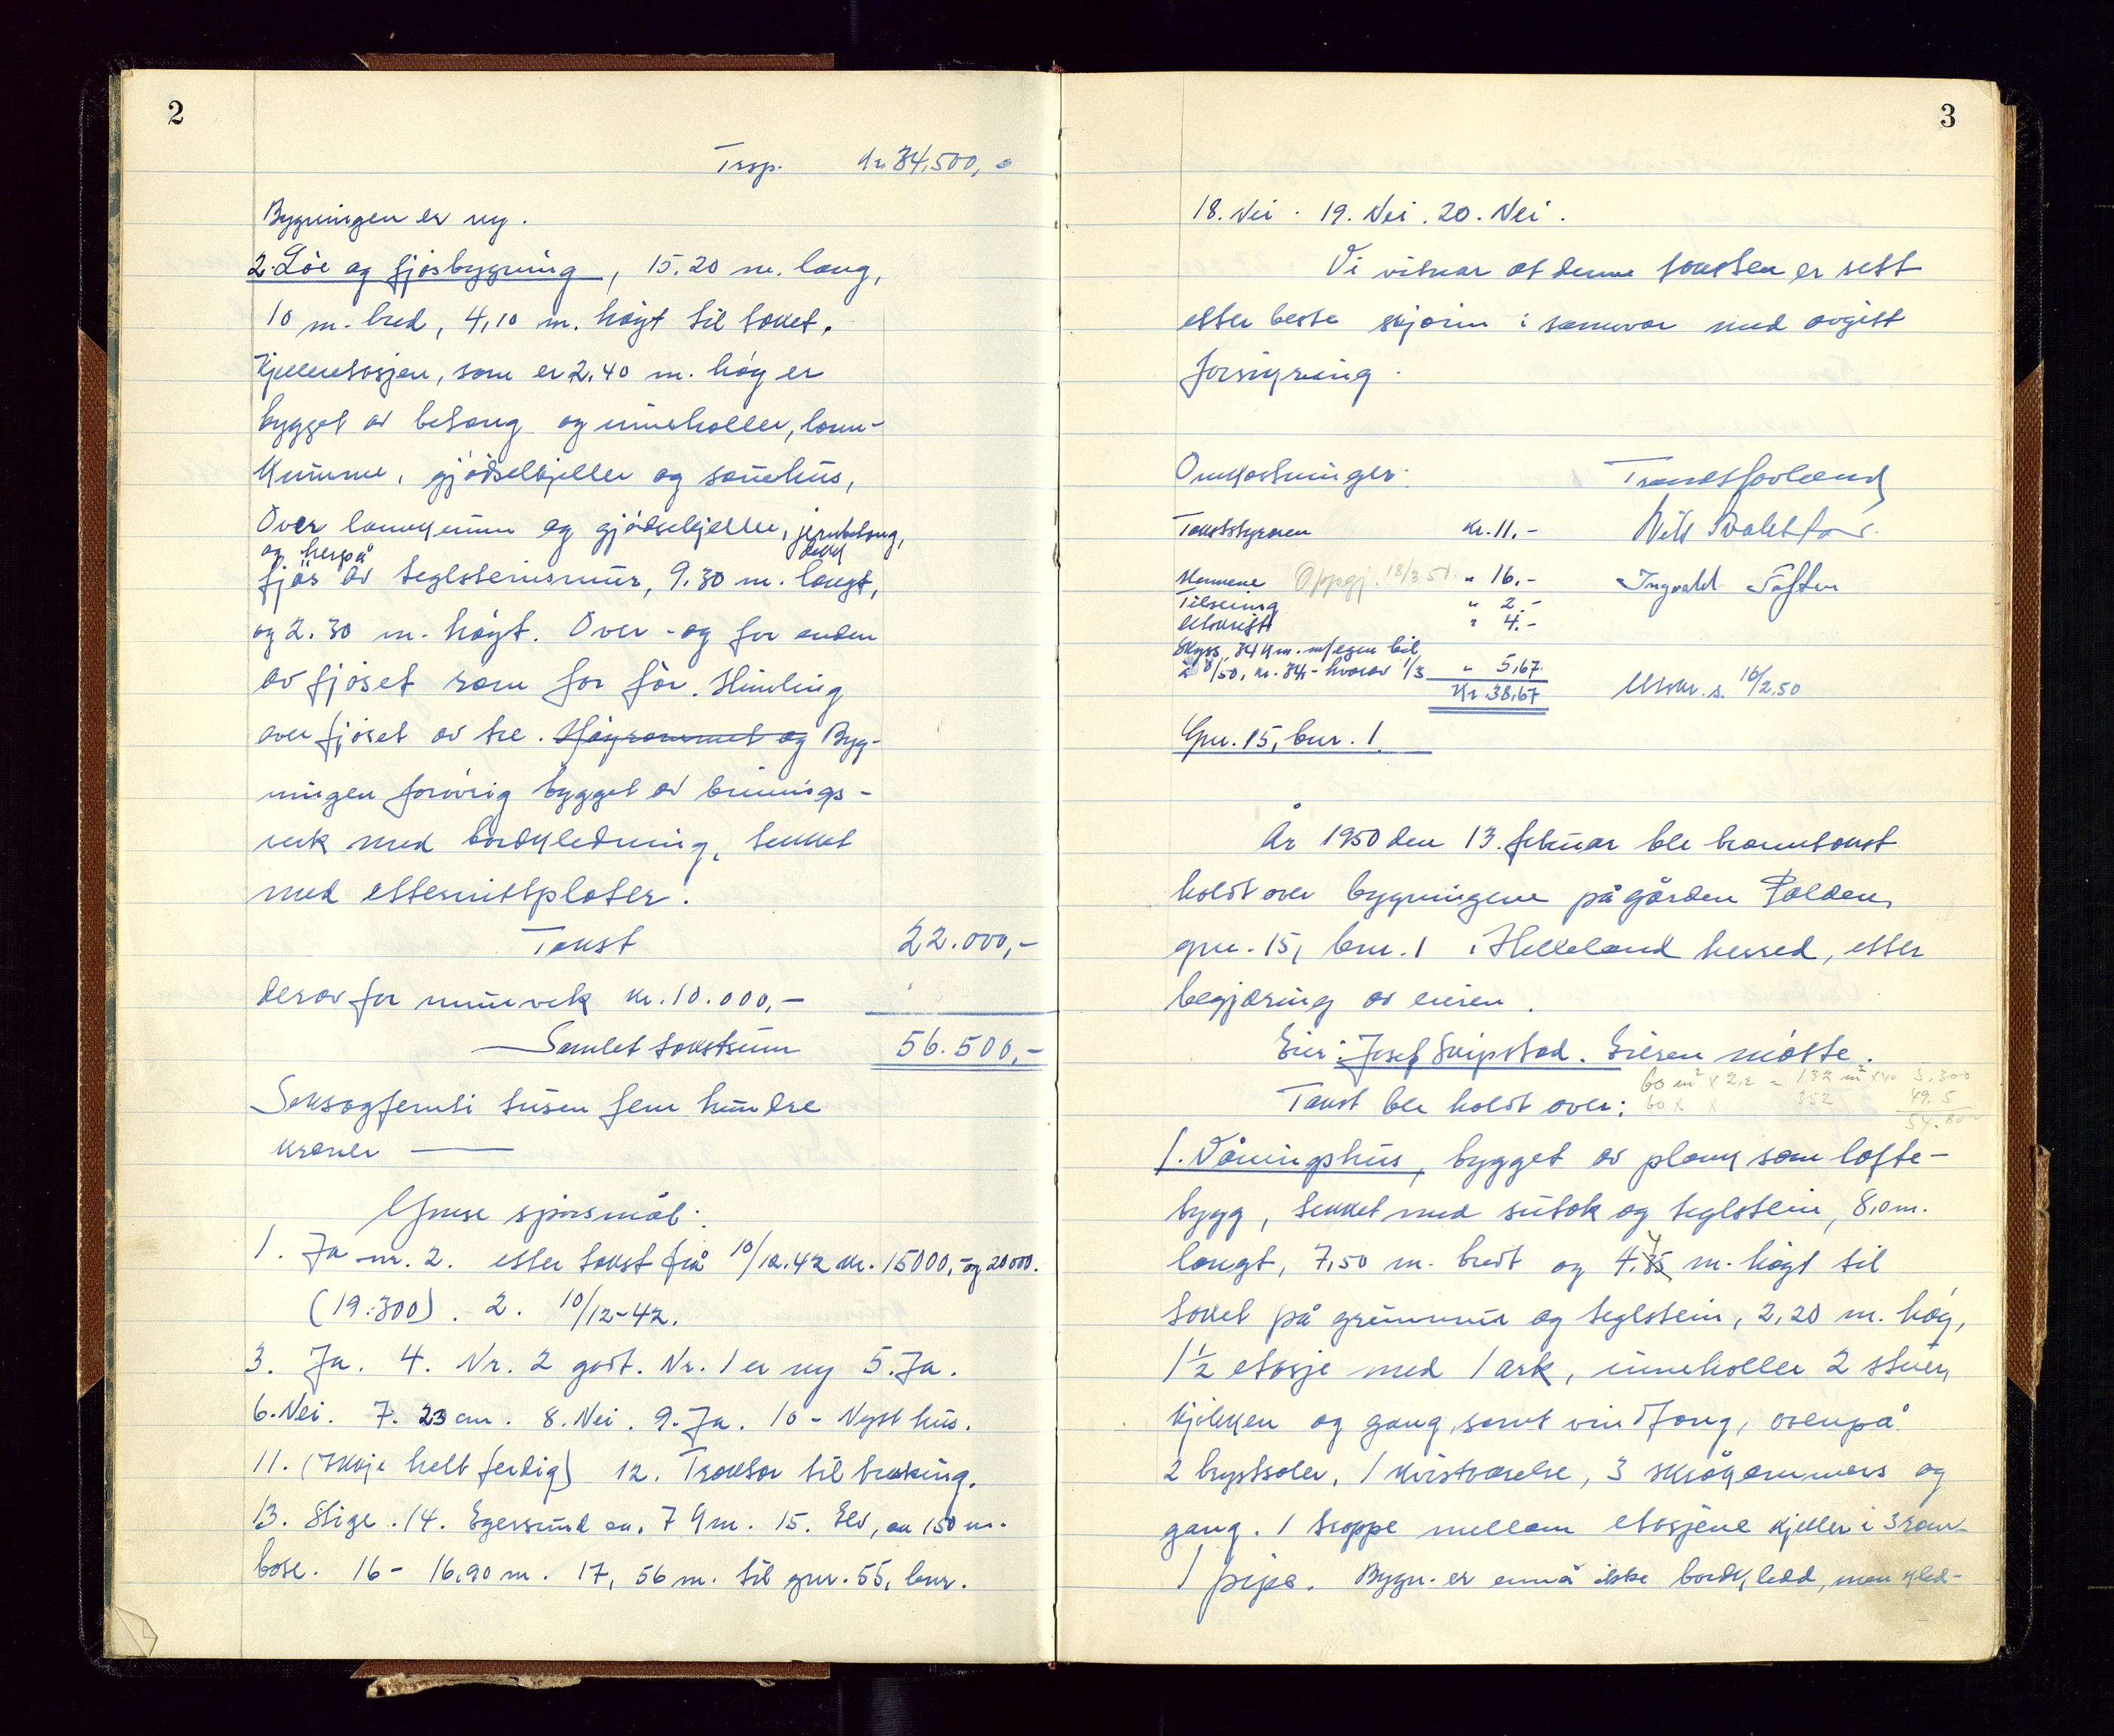 2
Trsp. Kr 34,500,-
Bygningen er ny.
2. Löe og fjösbygning, 15.20 m. lang,
10 m. bred, 4,10 m. høgt til taket.
Kjelleretasjen, som er 2.40 m. høg er
bygget av betong og inneholler, lann-
kumme, gjödselkjeller og sauehus,
Over lannkumm og gjödselkjeller, jernbetong,
og herpå dekk
fjös av teglsteinsmur, 9.30 m. langt,
og 2.30 m. høgt. Over - og for enden
av fjöset rom for fôr. Himling
over fjöset av tre. Høyrommet og Byg-
ningen forövrig bygget av binnings-
verk med bordkledning, tekket
med etternittplater.
Takst 22.000,-
derav for murverk kr. 10.000,-
Samlet takstsum 56.500,-
Seksogfemti tusen fem hundre
kroner
Ymse spörsmål:
1. Ja nr. 2. etter takst frå 10/12.42 kr. 15000,- og 20000.
(19.300). 2. 10/12-42.
3. Ja. 4. Nr. 2 godt. Nr. 1 er ny 5. Ja.
6. Nei. 7. 23 cm. 8. Nei. 9. Ja. 10 - Nytt hus.
11. (Ikkje helt ferdig) 12. Traktor til trøsking.
13. Stige. 14. Egersund ca. 7 km. 15. Elv, ca 150 m.
bose. 16 - 16,90 m. 17, 56 m. til gnr. 55, bnr.
3
18. Nei. 19. Nei. 20. Nei.
Vi vitnar at denne taksten er sett
etter beste skjönn i samsvar med avgitt
forsikring.
Omkostninger:
Trond Hovland
Takststyraren kr. 11.-
Nils Svalestad
Mennene Oppgj. 18/3 51. " 16.-
Ingvald Tøften
Tilsening " 2.-
Utskrift " 4.-
Skyss, 34 km. m/egen bil
à 0/50, kr. 34,- hvorav 1/3 " 5,67.
Kr. 38,67
Utskr. s. 16/2.50
Gnr. 15, bnr. 1.
År 1950 den 13. februar ble branntakst
holdt over bygningene på gården Polden,
gnr. 15, bnr. 1 i Helleland herred, etter
begjæring av eieren.
Eier: Josef Skipstad. Eieren møtte.
60 m² x 2,2 = 132 m² x 40 5,300
Takst ble holdt over:
60 x x 352 49.5
54.800
1. Våningshus, bygget av plank som lofte-
bygg, tekket med sutak og teglstein, 8,0 m.
langt, 7,50 m. bredt og 4.35 m. høgt til
taket på grunnmur og teglstein, 2,20 m. høg,
1½ etasje med 1 ark, inneholler 2 stuer,
kjökken og gang, samt vindfang, ovenpå
2 brystsaler, 1 kvistværelse, 3 skråkammers og
gang. 1 trappe mellom etasjene kjeller i 3 rom
1 pipe. Bygn. er ennå ikke bordkledd, men kled-